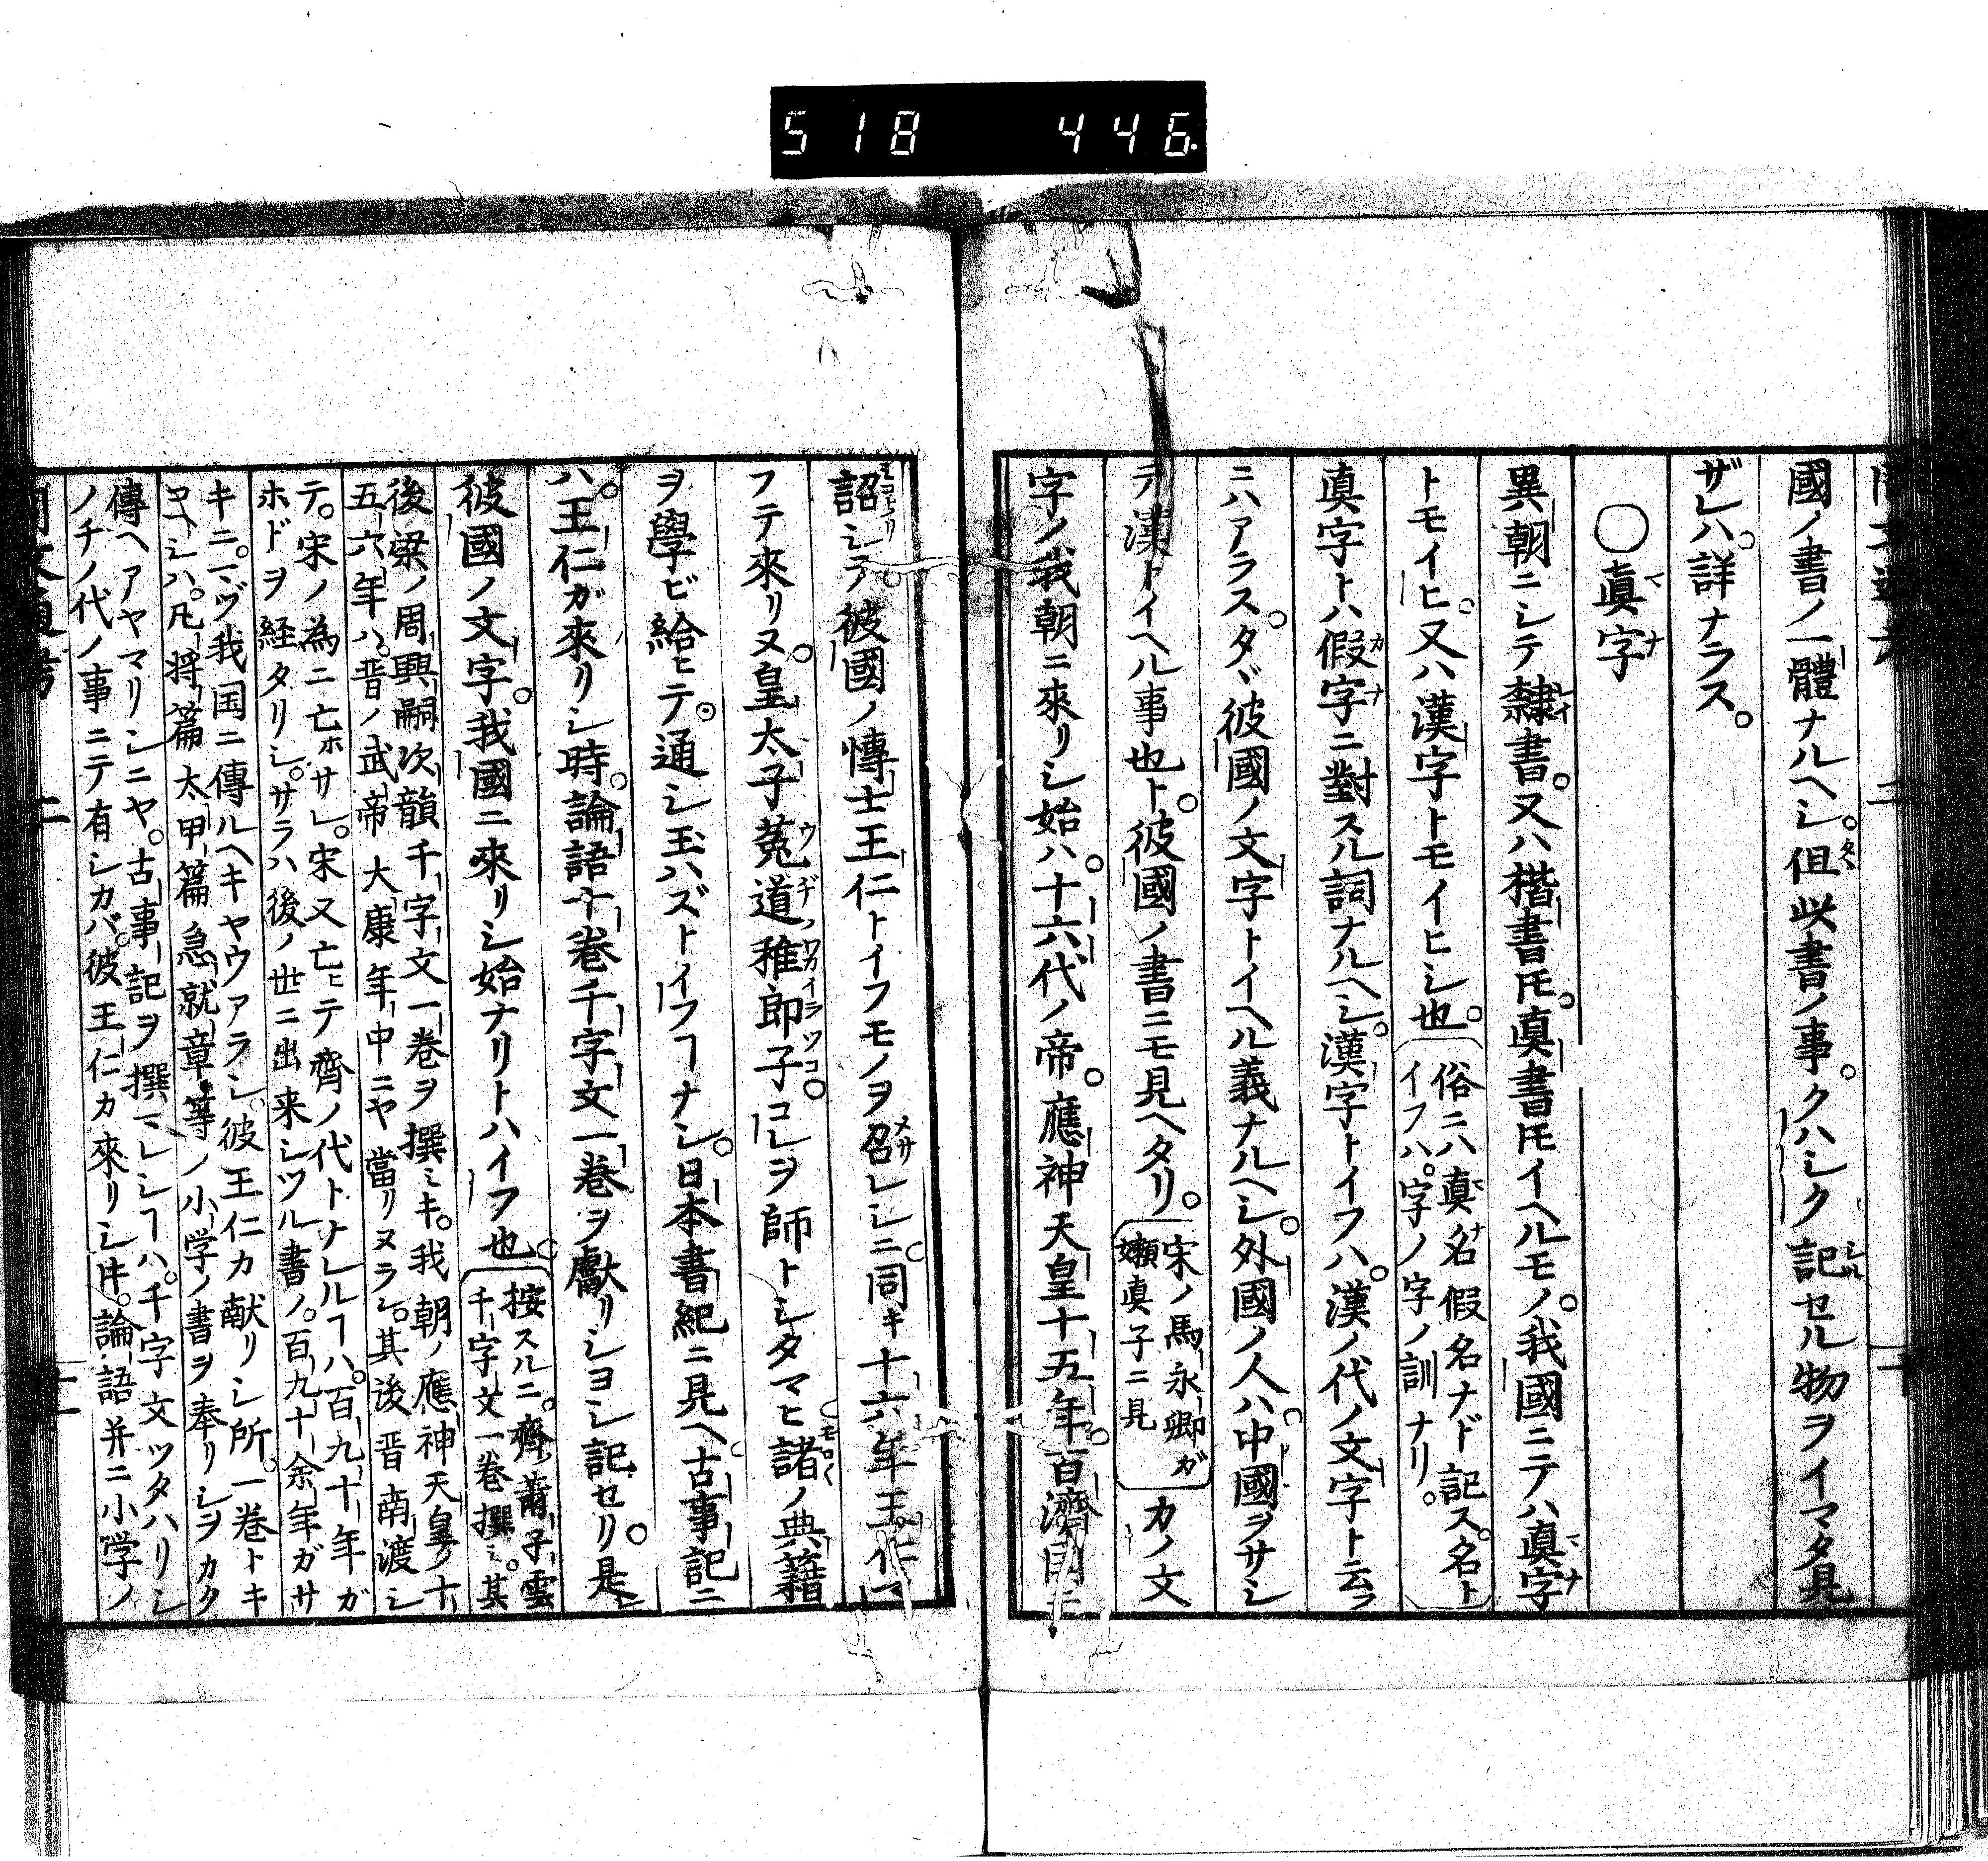 518 446.
國ノ書ノ一體ナルヘシ。但此書ノ事。クハシク記セル物ヲイマタ見
ザレハ。詳ナラス。
〇眞字
異朝ニシテ隸書。又ハ楷書𪜈。眞書𪜈イヘルモノ。我國ニテハ眞字
トモイヒ。又ハ漢字トモイヒシ也。
俗ニハ眞名假名ナド記ス。名ト
イフハ。字ノ字ノ訓ナリ。
眞字トハ假字ニ對スル詞ナルヘシ。漢字トイフハ。漢ノ代ノ文字ト云フ
ニハアラス。タヾ彼國ノ文字トイヘル義ナルヘシ。外國ノ人ハ。中國ヲサシ
テ漢トイヘル事也ト。彼國ノ書ニモ見ヘタリ。
宋ノ馬永卿ガ
嬾眞子ニ見
カノ文
字ノ我朝ニ來リシ始ハ。十六代ノ帝。應神天皇十五年。百濟國ニ
詔シテ。彼國ノ慱士王仁トイフモノヲ召レシニ。同キ十六年王仁
フテ來リヌ。皇太子菟道稚郎子。コレヲ師トシタマヒ諸ノ典籍
ヲ學ビ給ヒテ。通シ玉ハズトイフヿナシ。日本書紀ニ見ヘ。古事記ニ
ハ。王仁ガ來リシ時。論語十卷千字文一卷ヲ獻リシヨシ記セリ。是
彼國ノ文字。我國ニ來リシ始ナリトハイフ也。
按スルニ。齊ノ蕭子雲
千字文一卷撰ミ。其
後梁ノ周興嗣次韻千字文一卷ヲ撰ミキ。我朝ノ應神天皇ノ十
五六年ハ。晋ノ武帝大康年中ニヤ當リヌラシ。其後晋南渡シ
テ。宋ノ為ニ亡サレ。宋又亡ヒテ齊ノ代トナレルヿハ。百九十年ガ
ホドヲ経タリシ。サラハ後ノ世ニ出来シツル書ノ。百九十余年ガサ
キニ。マヅ我国ニ傳ルヘキヤウアラシ。彼王仁カ献リシ所。一卷トキ
コヘシハ。凡將篇太甲篇急就章等ノ小学ノ書ヲ奉リシヲカク
傳ヘアヤマリシニヤ。古事記ヲ撰マレシヿハ。千字文ツタハリシ
ノチノ代ノ事ニテ有シカバ。彼王仁カ來リシ𪜈。論語并ニ小学ノ